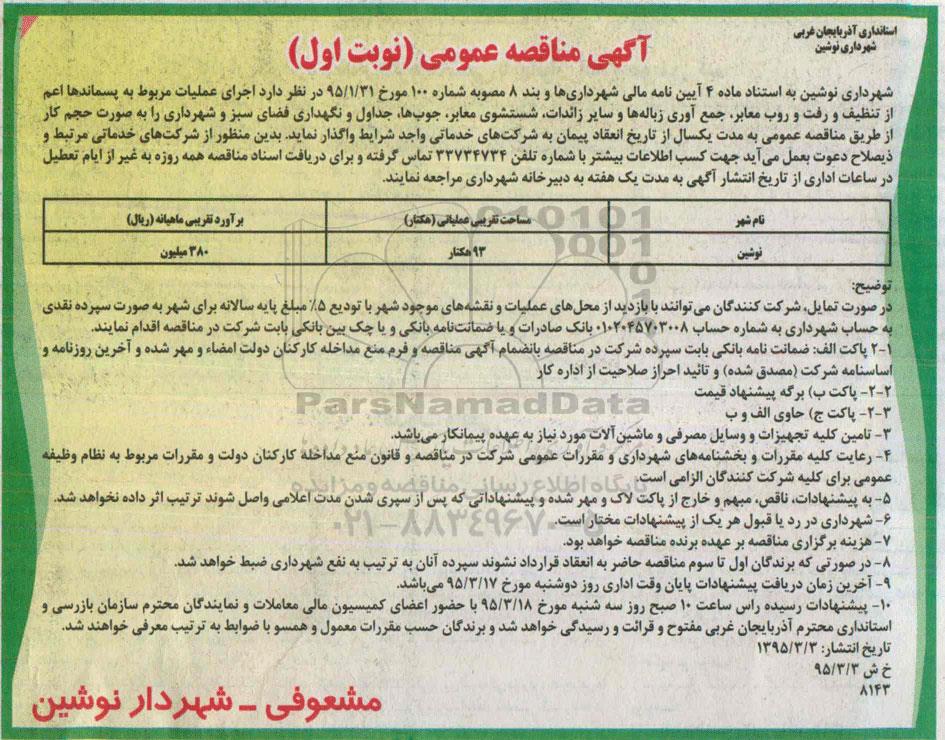 استانداری آذربایجان غربی
شهرداری نوشین
آگهی مناقصه عمومی (نوبت اول)
شهرداری نوشین به استناد ماده ۴ آیین نامه مالی شهرداری‌ها و بند ۸ مصوبه شماره ۱۰۰ مورخ ۹۵/۱/۳۱ در نظر دارد اجرای عملیات مربوط به پسماندها اعم
از تنظیف و رفت و روب معابر، جمع آوری زباله‌ها و سایر زائدات، شستشوی معابر، جوب‌ها، جداول و نگهداری فضای سبز و شهرداری را به صورت حجم کار
از طریق مناقصه عمومی به مدت یکسال از تاریخ انعقاد پیمان به شرکت‌های خدماتی واجد شرایط واگذار نماید. بدین منظور از شرکت‌های خدماتی مرتبط و
ذیصلاح دعوت بعمل می‌آید جهت کسب اطلاعات بیشتر با شماره تلفن ۳۳۷۳۴۷۳۴ تماس گرفته و برای دریافت اسناد مناقصه همه روزه به غیر از ایام تعطیل
در ساعات اداری از تاریخ انتشار آگهی به مدت یک هفته به دبیرخانه شهرداری مراجعه نمایند.
نام شهر مساحت تقریبی عملیاتی (هکتار) برآورد تقریبی ماهیانه (ریال)
نوشین ۹۳ هکتار ۳۸۰ میلیون
توضیح:
در صورت تمایل، شرکت کنندگان می‌توانند با بازدید از محل‌های عملیات و نقشه‌های موجود شهر با تودیع ۵٪ مبلغ پایه سالانه برای شهر به صورت سپرده نقدی
به حساب شهرداری به شماره حساب ۰۱۰۲۰۴۵۷۰۳۰۰۸ بانک صادرات و یا ضمانت‌نامه بانکی و یا چک بین بانکی بابت شرکت در مناقصه اقدام نمایند.
۲-۱ پاکت الف: ضمانت نامه بانکی بابت سپرده شرکت در مناقصه بانضمام آگهی مناقصه و فرم منع مداخله کارکنان دولت امضاء و مهر شده و آخرین روزنامه و
اساسنامه شرکت (مصدق شده) و تائید احراز صلاحیت از اداره کار
۲-۲- پاکت ب) برگه پیشنهاد قیمت
۲-۳- پاکت ج) حاوی الف و ب
۳- تامین کلیه تجهیزات و وسایل مصرفی و ماشین‌آلات مورد نیاز به عهده پیمانکار می‌باشد.
۴- رعایت کلیه مقررات و بخشنامه‌های شهرداری و مقررات عمومی شرکت در مناقصه و قانون منع مداخله کارکنان دولت و مقررات مربوط به نظام وظیفه
عمومی برای کلیه شرکت کنندگان الزامی است.
۵- به پیشنهادات، ناقص، مبهم و خارج از پاکت لاک و مهر شده و پیشنهاداتی که پس از سپری شدن مدت اعلامی واصل شوند ترتیب اثر داده نخواهد شد.
۶- شهرداری در رد یا قبول هر یک از پیشنهادات مختار است.
۷- هزینه برگزاری مناقصه بر عهده برنده مناقصه خواهد بود.
۸- در صورتی که برندگان اول تا سوم مناقصه حاضر به انعقاد قرارداد نشوند سپرده آنان به ترتیب به نفع شهرداری ضبط خواهد شد.
۹- آخرین زمان دریافت پیشنهادات پایان وقت اداری روز دوشنبه مورخ ۹۵/۳/۱۷ می‌باشد.
۱۰- پیشنهادات رسیده راس ساعت ۱۰ صبح روز سه شنبه مورخ ۹۵/۳/۱۸ با حضور اعضای کمیسیون مالی معاملات و نمایندگان محترم سازمان بازرسی و
استانداری محترم آذربایجان غربی مفتوح و قرائت و رسیدگی خواهد شد و برندگان حسب مقررات معمول و همسو با ضوابط به ترتیب معرفی خواهند شد.
تاریخ انتشار: ۱۳۹۵/۳/۳
خ ش ۹۵/۳/۳
۸۱۴۳
مشعوفی - شهردار نوشین
ParsNamadData
پایگاه اطلاع رسانی مناقصه و مزایده